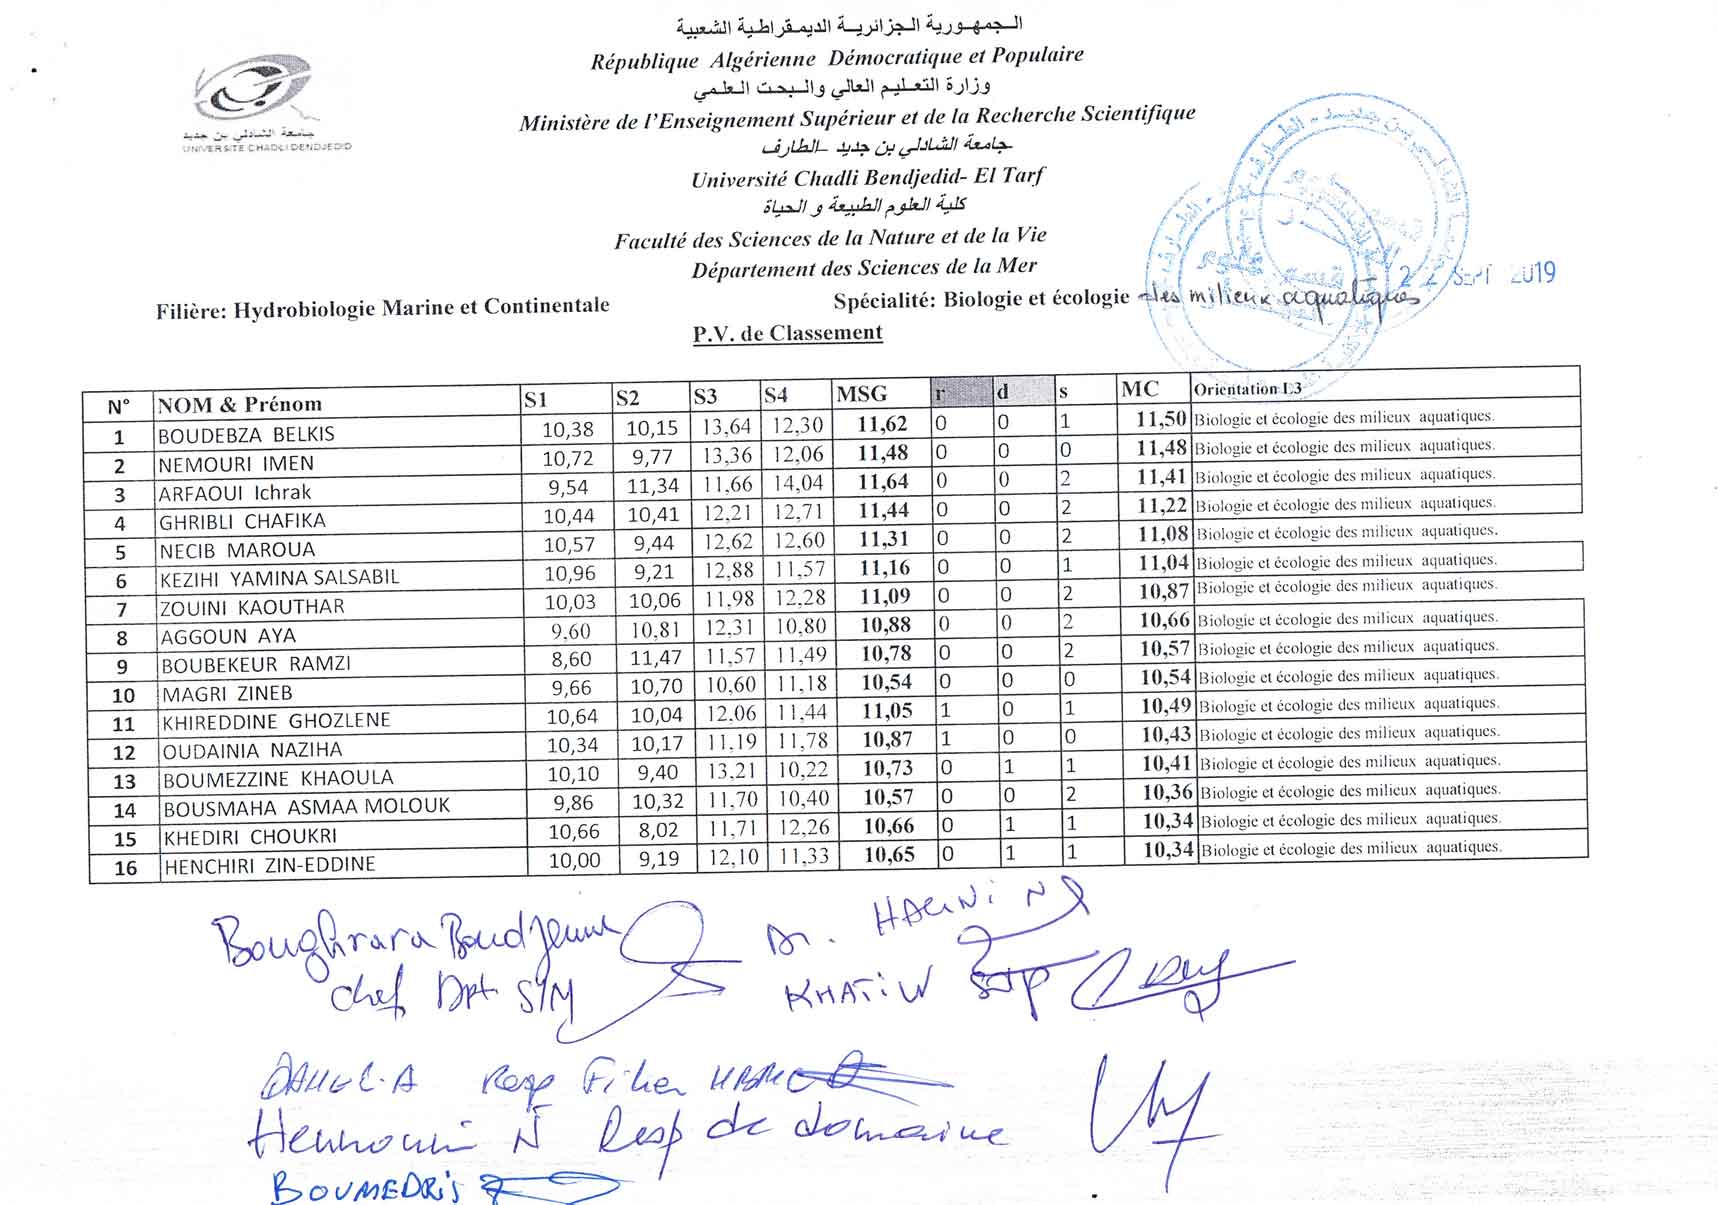 الـجمهـورية الـجزائريـة الديمـقراطـية الشعبية
République Algérienne Démocratique et Populaire
وزارة التعـليـم العالي والـبحـت العـلـمي
Ministère de l'Enseignement Supérieur et de la Recherche Scientifique
جامعة الشاذلي بن جديد –الطارف
Université Chadli Bendjedid- El Tarf
كلية العلوم الطبيعة و الحياة
Faculté des Sciences de la Nature et de la Vie
Département des Sciences de la Mer
جامعة الشاذلي بن جديد
UNIVERSITE CHADLI BENDJEDID
22 SEPT 2019
Filière: Hydrobiologie Marine et Continentale Spécialité: Biologie et écologie des milieux aquatiques
P.V. de Classement
N° NOM & Prénom S1 S2 S3 S4 MSG r d s MC Orientation L3
1 BOUDEBZA BELKIS 10,38 10,15 13,64 12,30 11,62 0 0 1 11,50 Biologie et écologie des milieux aquatiques.
2 NEMOURI IMEN 10,72 9,77 13,36 12,06 11,48 0 0 0 11,48 Biologie et écologie des milieux aquatiques.
3 ARFAOUI Ichrak 9,54 11,34 11,66 14,04 11,64 0 0 2 11,41 Biologie et écologie des milieux aquatiques.
4 GHRIBLI CHAFIKA 10,44 10,41 12,21 12,71 11,44 0 0 2 11,22 Biologie et écologie des milieux aquatiques.
5 NECIB MAROUA 10,57 9,44 12,62 12,60 11,31 0 0 2 11,08 Biologie et écologie des milieux aquatiques.
6 KEZIHI YAMINA SALSABIL 10,96 9,21 12,88 11,57 11,16 0 0 1 11,04 Biologie et écologie des milieux aquatiques.
7 ZOUINI KAOUTHAR 10,03 10,06 11,98 12,28 11,09 0 0 2 10,87 Biologie et écologie des milieux aquatiques.
8 AGGOUN AYA 9,60 10,81 12,31 10,80 10,88 0 0 2 10,66 Biologie et écologie des milieux aquatiques.
9 BOUBEKEUR RAMZI 8,60 11,47 11,57 11,49 10,78 0 0 2 10,57 Biologie et écologie des milieux aquatiques.
10 MAGRI ZINEB 9,66 10,70 10,60 11,18 10,54 0 0 0 10,54 Biologie et écologie des milieux aquatiques.
11 KHIREDDINE GHOZLENE 10,64 10,04 12,06 11,44 11,05 1 0 1 10,49 Biologie et écologie des milieux aquatiques.
12 OUDAINIA NAZIHA 10,34 10,17 11,19 11,78 10,87 1 0 0 10,43 Biologie et écologie des milieux aquatiques.
13 BOUMEZZINE KHAOULA 10,10 9,40 13,21 10,22 10,73 0 1 1 10,41 Biologie et écologie des milieux aquatiques.
14 BOUSMAHA ASMAA MOLOUK 9,86 10,32 11,70 10,40 10,57 0 0 2 10,36 Biologie et écologie des milieux aquatiques.
15 KHEDIRI CHOUKRI 10,66 8,02 11,71 12,26 10,66 0 1 1 10,34 Biologie et écologie des milieux aquatiques.
16 HENCHIRI ZIN-EDDINE 10,00 9,19 12,10 11,33 10,65 0 1 1 10,34 Biologie et écologie des milieux aquatiques.
Boughrara Boudjema
chef Dpt S/M
Resp
Resp de domaine